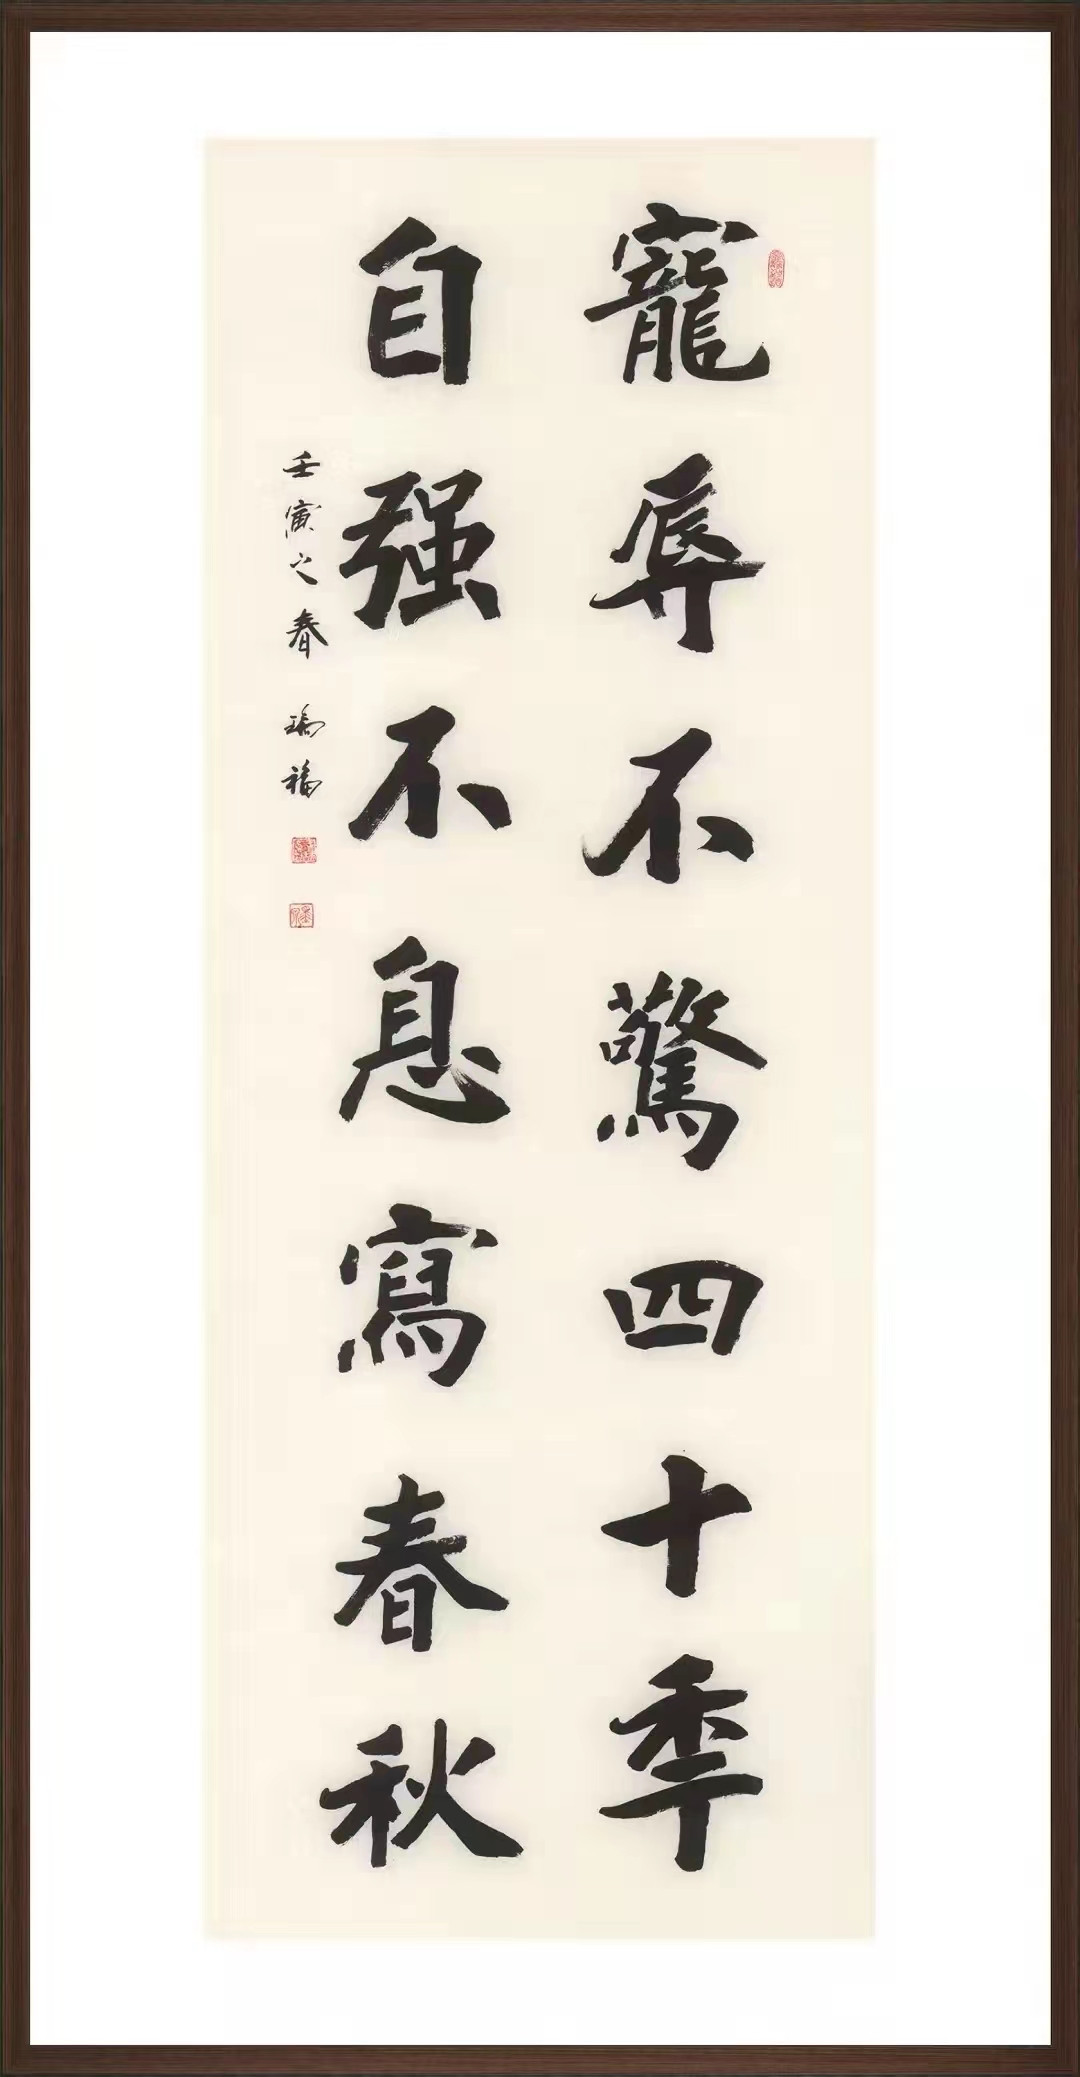 寵辱不驚四十秊
自强不息寫春秋
壬寅之春 瑞福